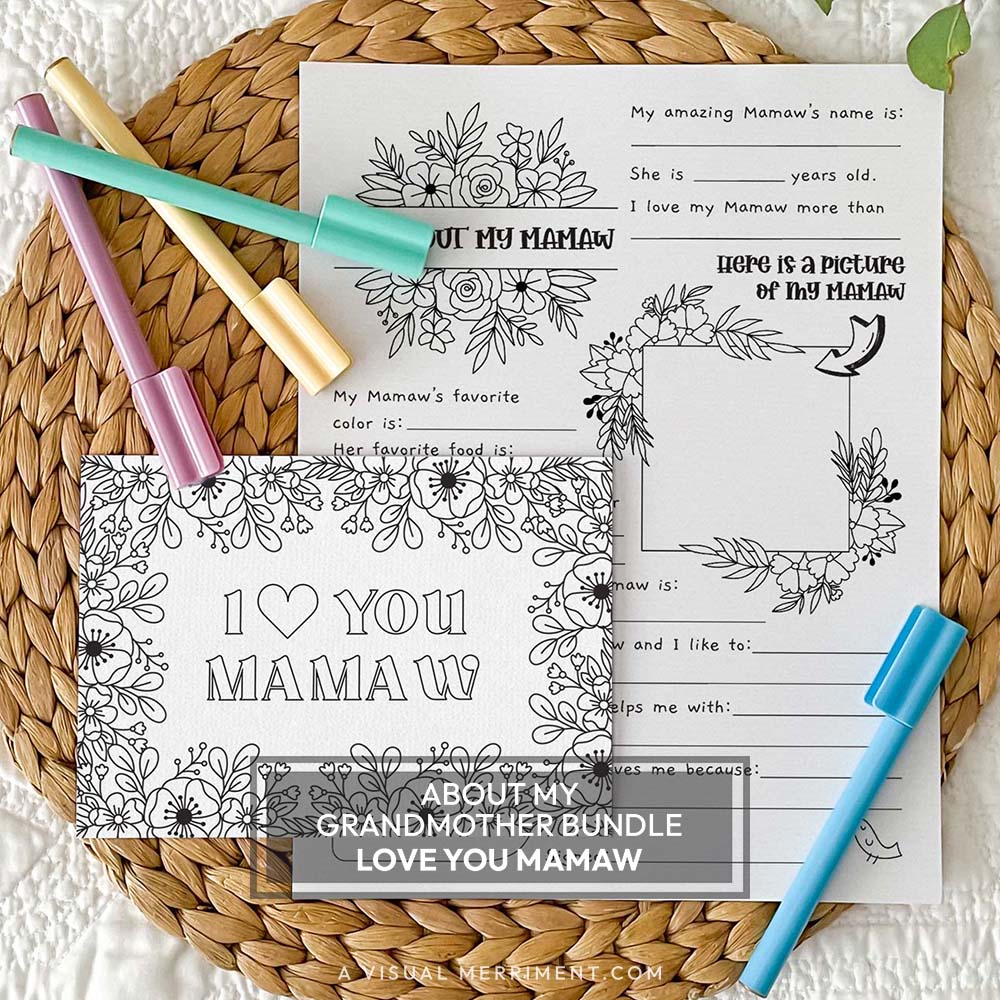 My amazing Mamaw's name is:
She is years old.
I love my Mamaw more than
MY MAMAW
Here is a picture
of my MAMAW
My Mamaw's favorite
color is:
Her favorite food is:
is:
and I like to:
me with:
me because:
I ♡ YOU
MAMAW
ABOUT MY
GRANDMOTHER BUNDLE
LOVE YOU MAMAW
A VISUAL MERRIMENT.COM